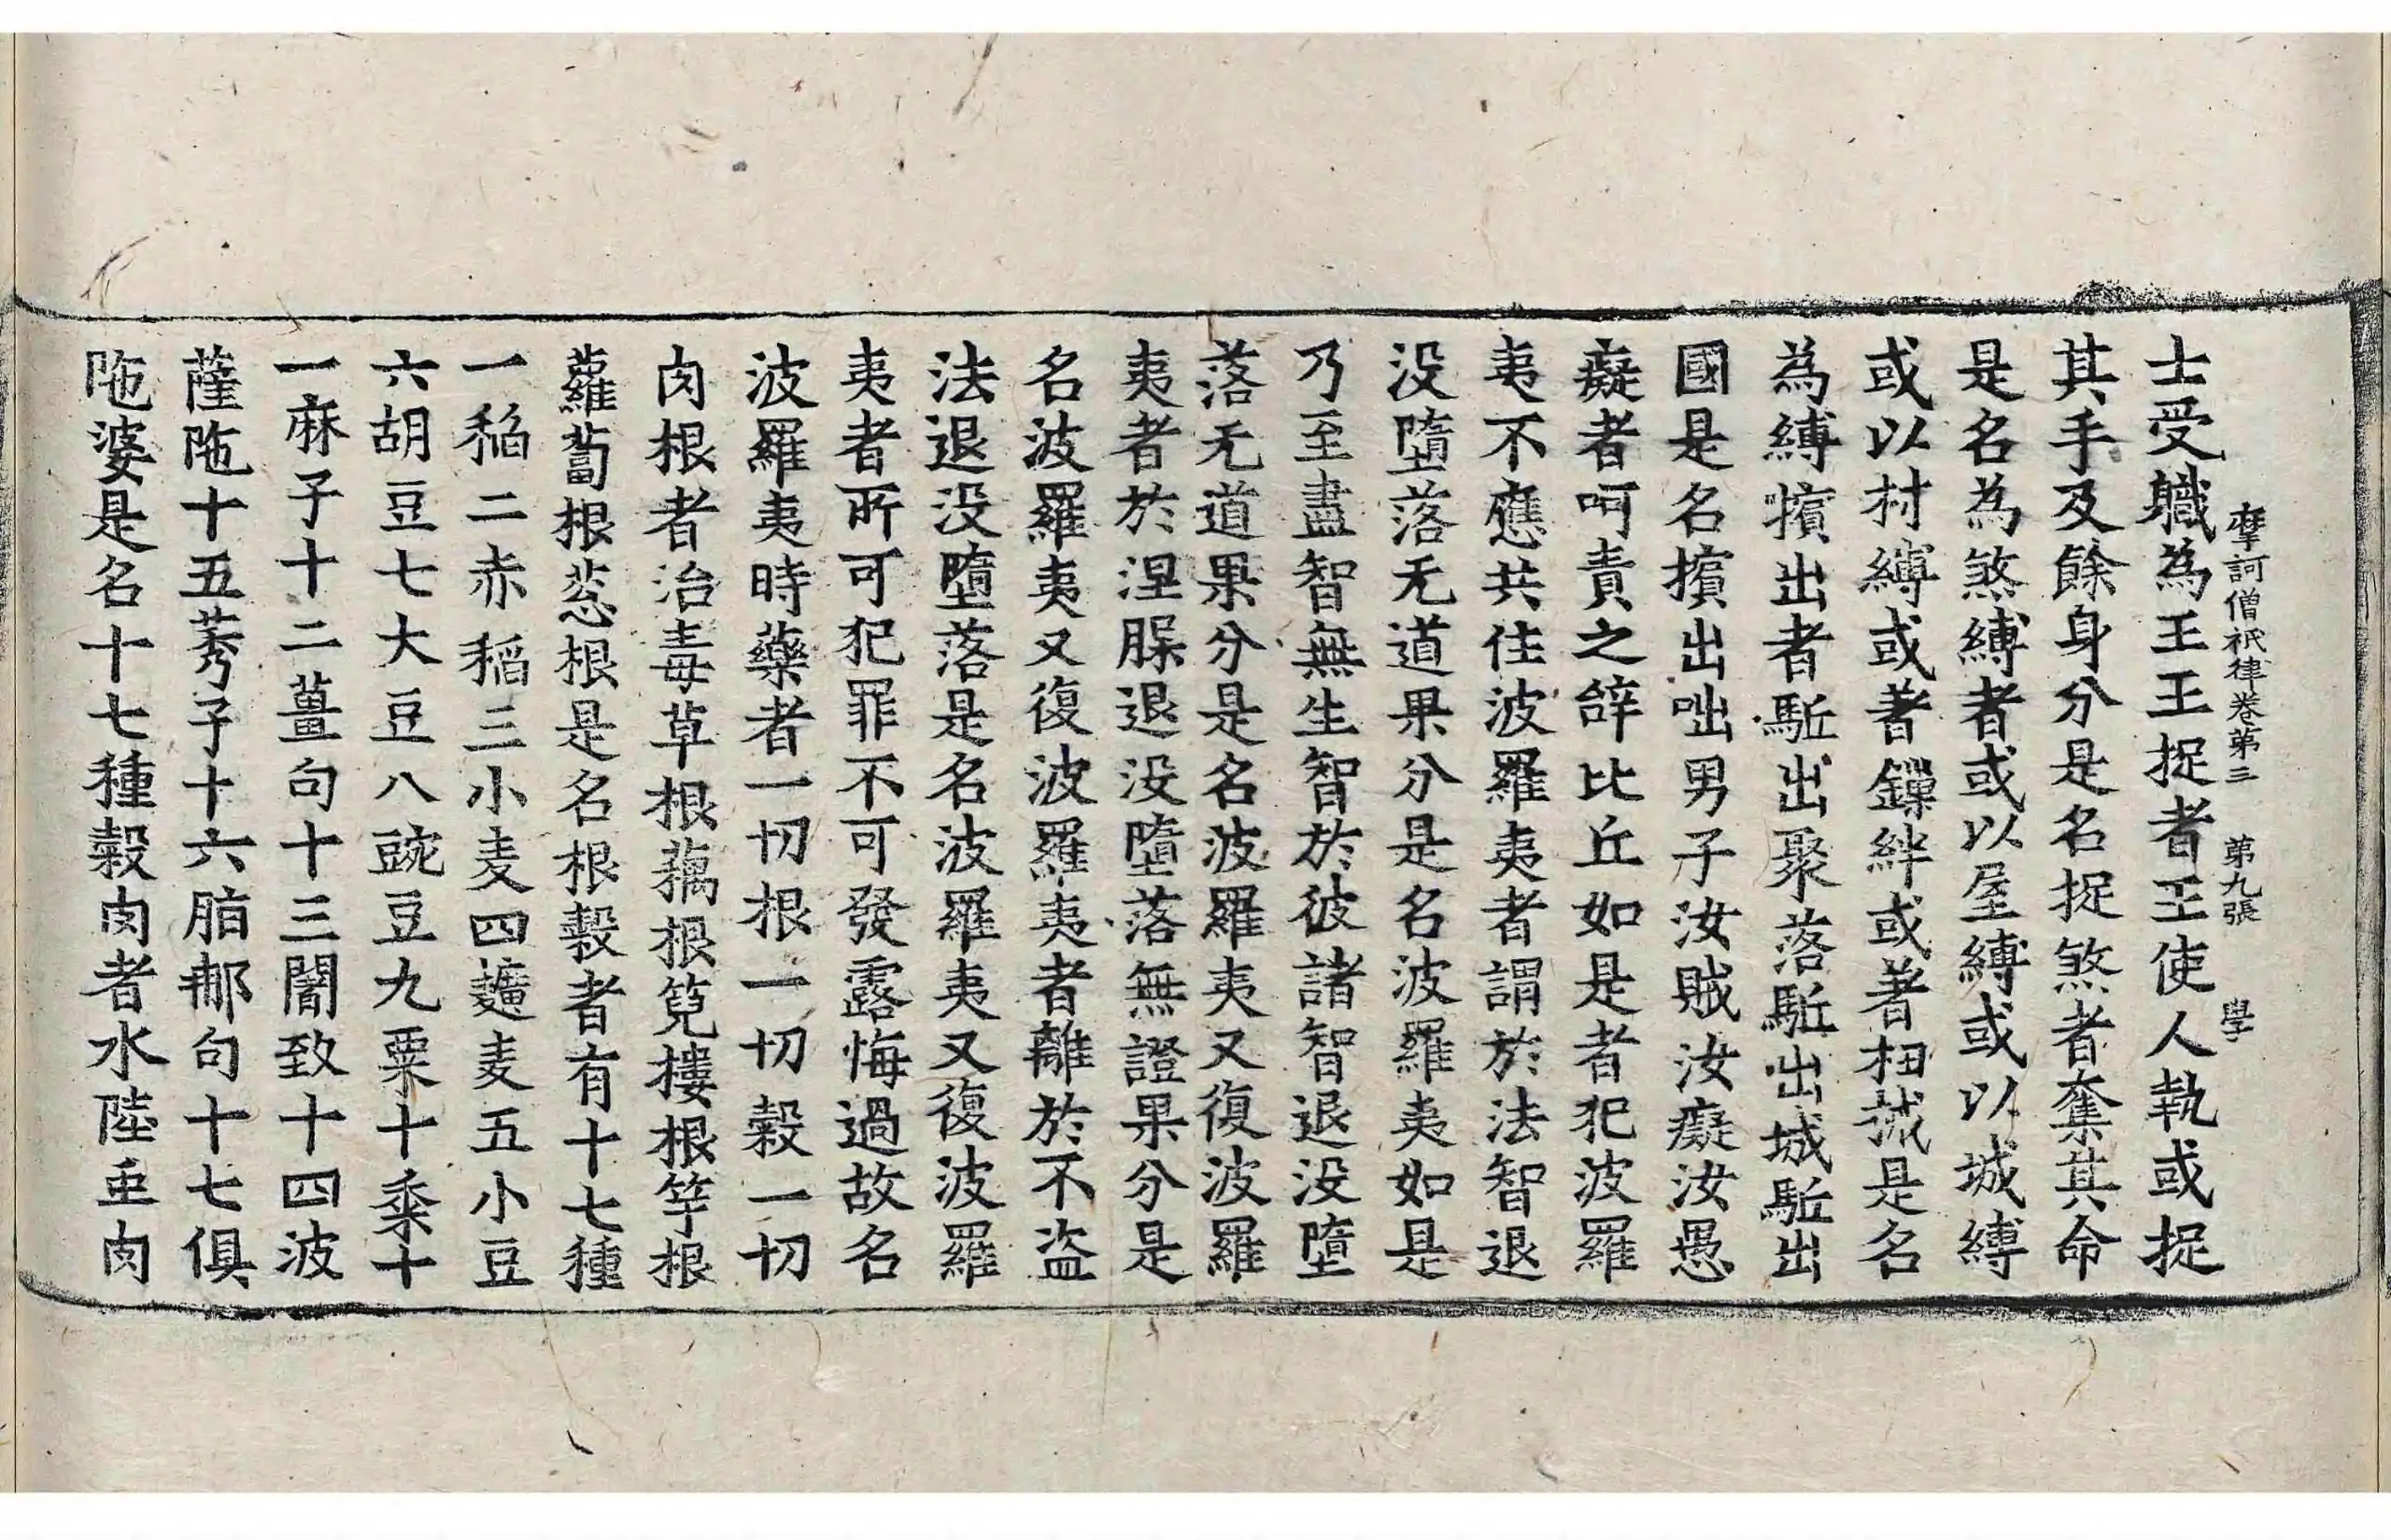 摩訶僧祇律卷第三 第九張 學
士受職為王王捉者王使人執或捉
其手及餘身分是名捉煞者奪其命
是名為煞縛者或以屋縛或以城縛
或以村縛或著鏁絆或著杻械是名
為縛擯出者駈出聚落駈出城駈出
國是名擯出咄男子汝賊汝癡汝愚
癡者呵責之辝比丘如是者犯波羅
夷不應共住波羅夷者謂於法智退
没墮落无道果分是名波羅夷如是
乃至盡智無生智於彼諸智退没墮
落无道果分是名波羅夷又復波羅
夷者於涅脲退没墮落無證果分是
名波羅夷又復波羅夷者離於不盜
法退没墮落是名波羅夷又復波羅
夷者所可犯罪不可發露悔過故名
波羅夷時藥者一切根一切穀一切
肉根者治毒草根藕根筧摟根竽根
蘿蔔根葱根是名根穀者有十七種
一稻二赤稻三小麦四䵃麦五小豆
六胡豆七大豆八豌豆九粟十黍十
一麻子十二薑句十三闍致十四波
薩陁十五莠子十六脂那句十七俱
陁婆是名十七種穀肉者水陸虫肉